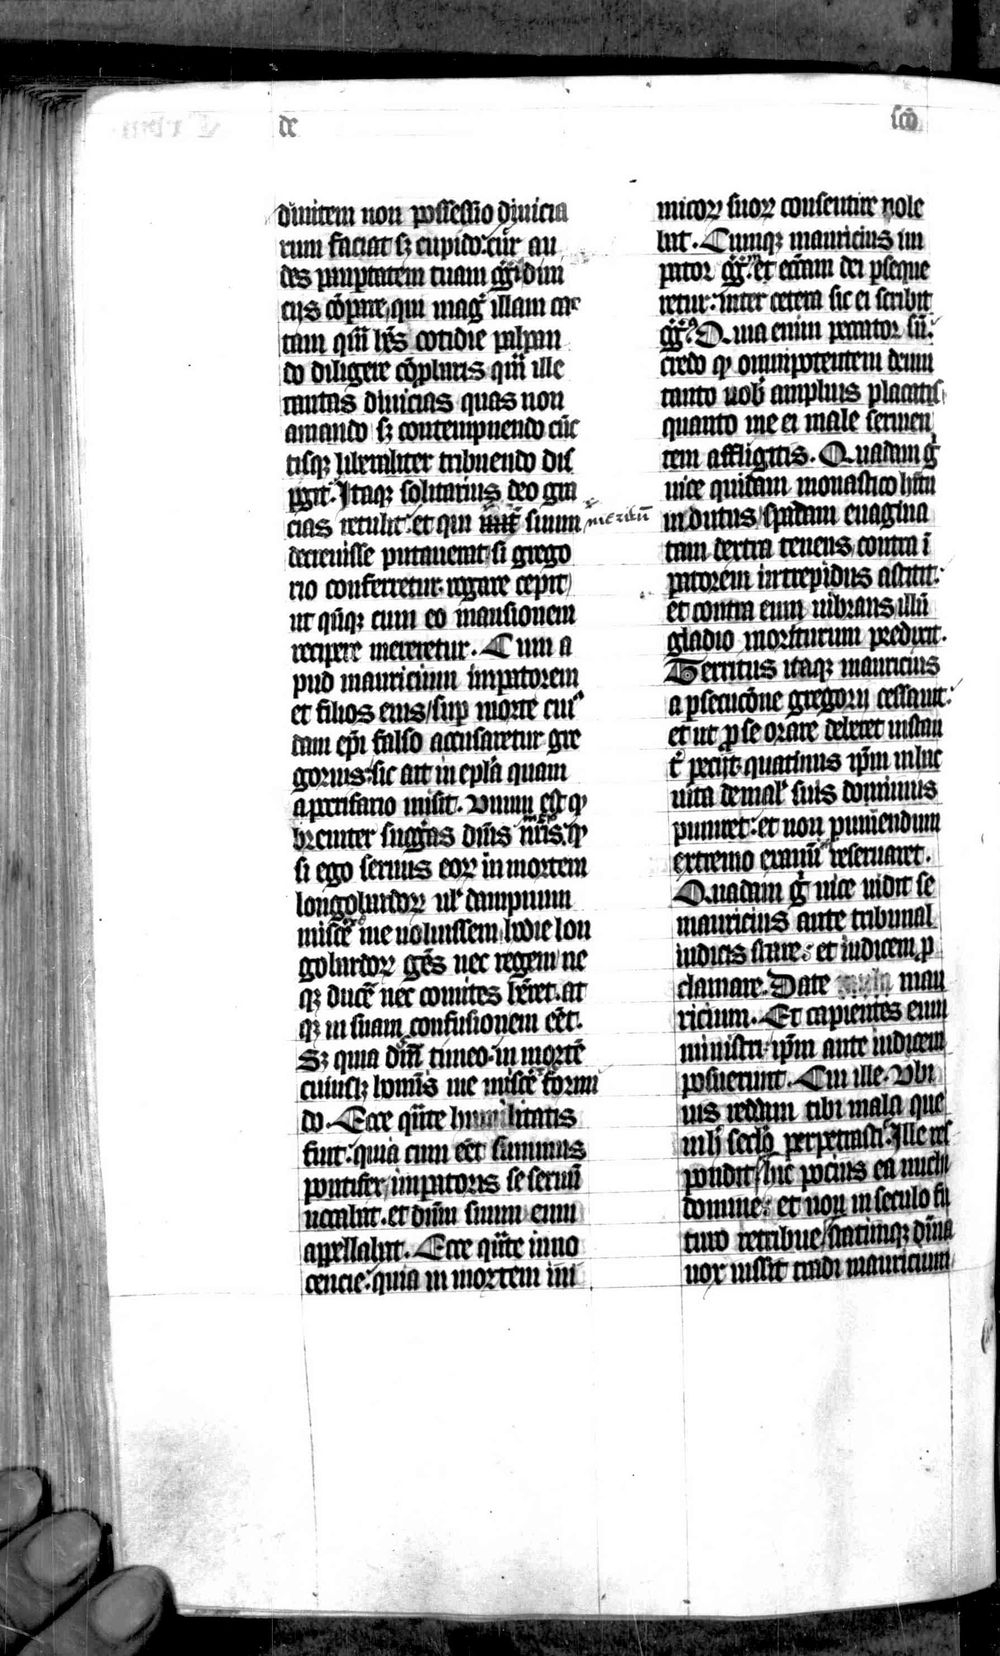 de
scō
diuitem non possessio diuicia
rum faciat sꝫ cupido. cur au
des paupertatem tuam gg̃i diui
ciis cōpare, qui mag̃ illam cat
tam quā hēs cotidie palpan
do diligere cōplaris quā ille
tantas diuicias quas non
amando sꝫ contempnendo cūc
tisqꝫ liberaliter tribuendo dis
pgit. Itaqꝫ solitarius deo gra
cias retulit. et qui suum
meritū
decreuisse putauerat si grego
rio conferretur. rogare cepit
ut qn̄qꝫ cum eo mansionem
recipere mereretur. Cum a
pud mauricium impatorem
et filios eius/ sup morte cuiꝰ
dam epī falso accusaretur gre
gorius. sic ait in epl̄a quam
aprifario misit. Vnum est qꝫ
breuiter suggas dn̄is nr̄is. qꝫ
si ego seruus eoꝝ in mortem
longobardoꝝ ul' dampnum
miscē me uoluissem hodie lon
gobardoꝝ gēs nec regem ne
qꝫ ducē nec comites hēret. at
qꝫ in suam confusionem eēt.
Sꝫ quia dm̄ timeo. in mortē
cuiuslꝫ hominis me miscē formi
do. Ecce qn̄te humilitatis
fuit. quia cum eēt summus
pontifex, impatoris se seruū
uocabat. et dn̄m suum eum
appellabat. Ecce qn̄te inno
cencie. quia in mortem ini
micoꝝ suoꝝ consentire nole
bat. Cumqꝫ mauricius im
pator gg̃. et eccam dei pseque
retur. inter cetera sic ei scribit
gg̃ꝰ. Quia enim peccator sū.
credo qꝫ omnipotentem deum
tanto uob' amplius placatis
quanto me ei male seruien
tem affligitis. Quadam g̃
uice quidam monastico hītu
indutus/ spadam euagina
tam dextra tenens contra ī
patorem intrepidus astitit.
et contra eum uibrans illū
gladio moriturum predixit.
Territus itaqꝫ mauricius
a psecucōne gregorii cessauit.
et ut p se orare deberet instan
t' peciit. quatinus ipm in hac
uita de mal' suis dominus
puniret. et non puniendum
extremo examī reseruaret.
Quadam g̃ uice uidit se
mauricius ante tribunal
iudicis stare. et iudicem p
clamare. Date mau
ricium. Et capientes eum
ministri. ipm ante iudicem
posuerunt. Cui ille. Vbi
uis reddam tibi mala que
in h' sec̄lo perpetrasti. Ille res
pondit/ hic pocius ea michi
domine. et non in seculo fu
turo retribue/ statimqꝫ diuīa
uox iussit tradi mauricium